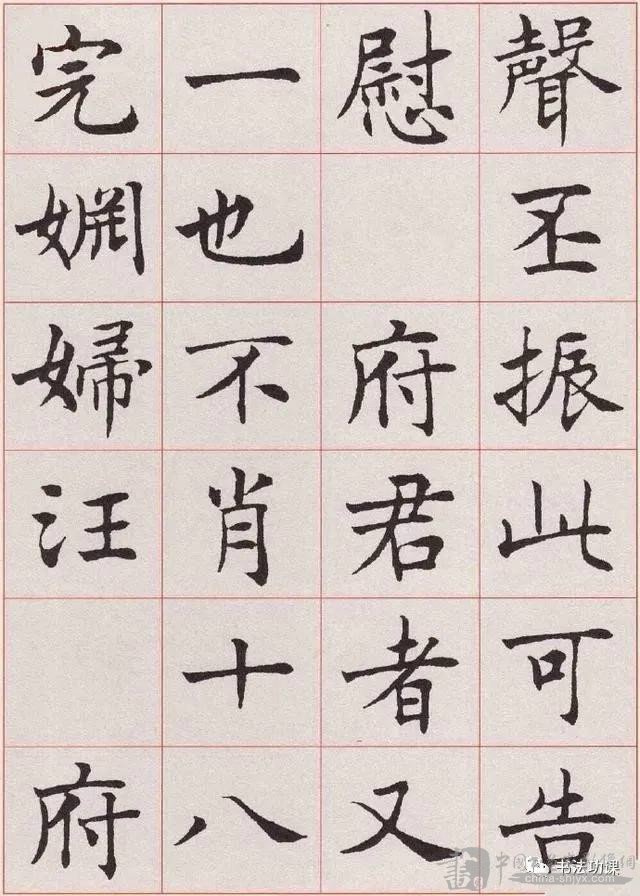 聲丕振此可告
慰 府君者又
一也不肖十八
完婣婦汪 府
书法功课
china-shjyx.com